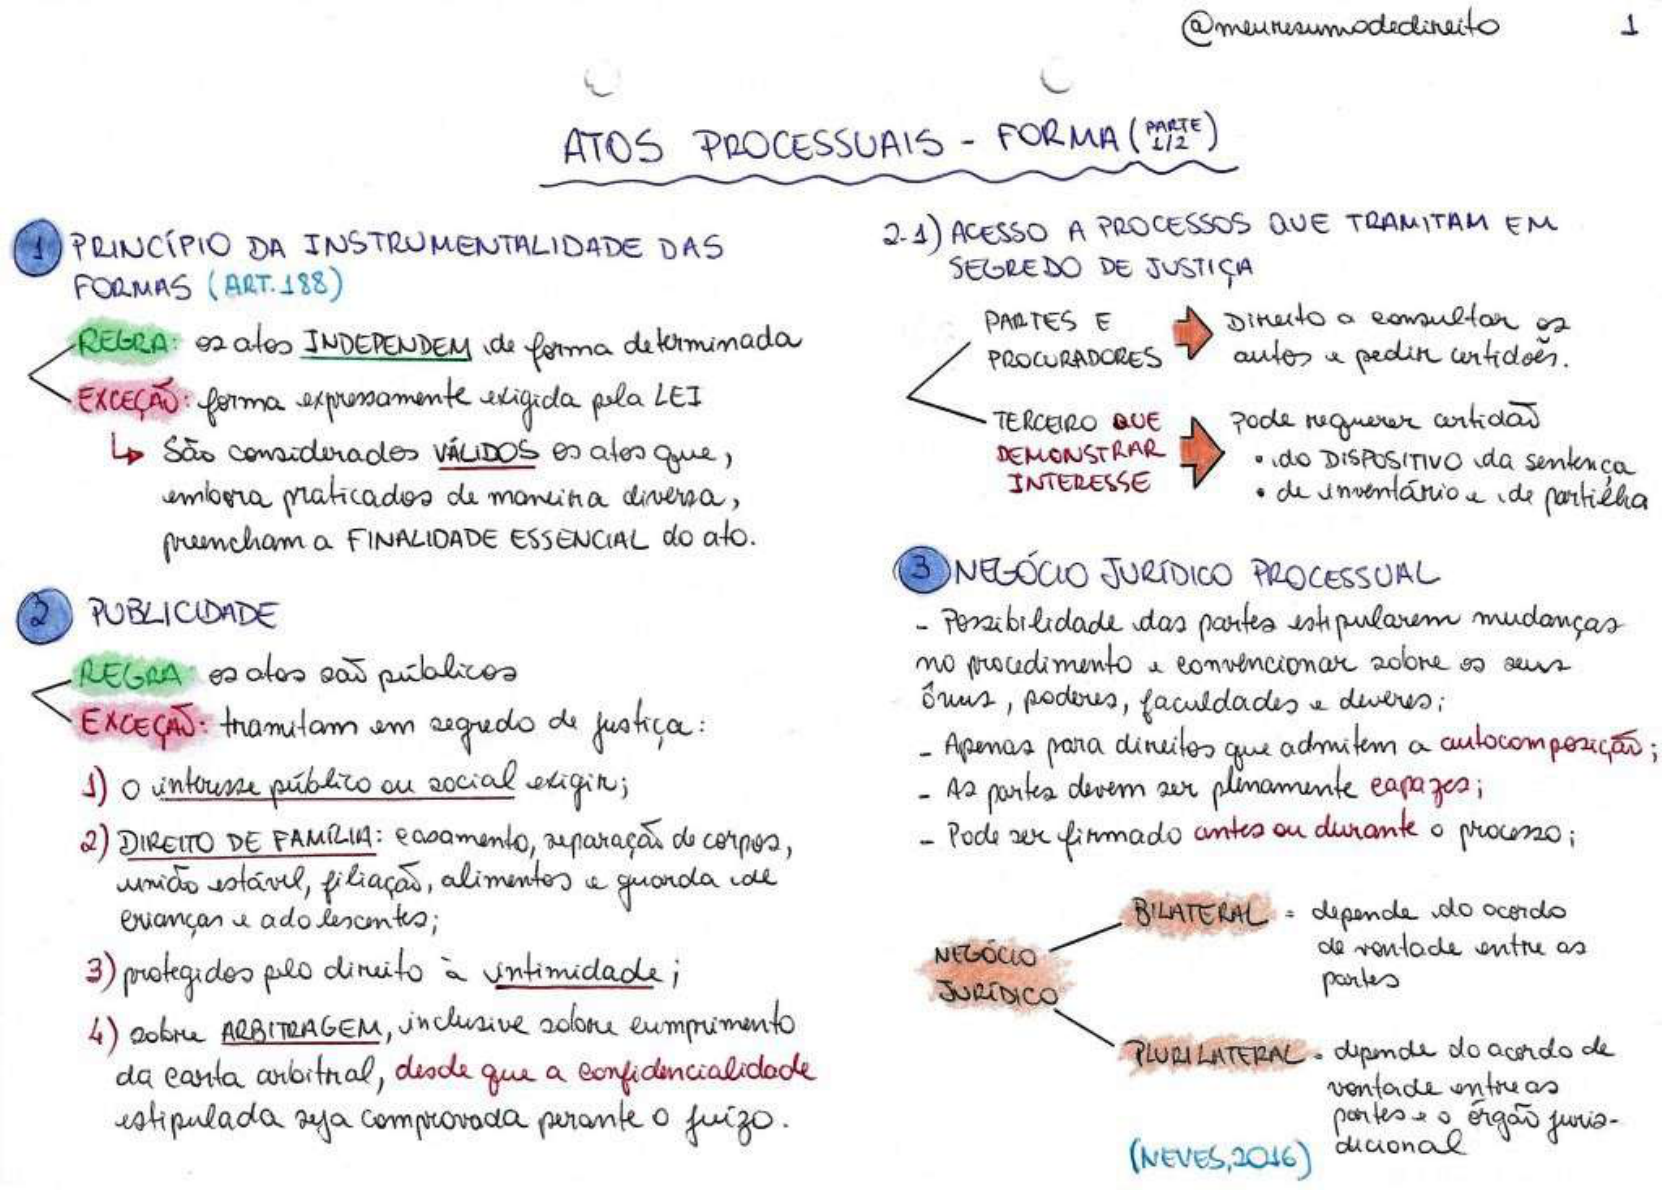 @meuresumodedireito 1
ATOS PROCESSUAIS - FORMA (PARTE 1/2)
1 PRINCÍPIO DA INSTRUMENTALIDADE DAS
FORMAS (ART.188)
REGRA: os atos INDEPENDEM de forma determinada
EXCEÇÃO: forma expressamente exigida pela LEI
↳ São considerados VÁLIDOS os atos que,
embora praticados de maneira diversa,
preencham a FINALIDADE ESSENCIAL do ato.
2 PUBLICIDADE
REGRA: os atos são públicos
EXCEÇÃO: tramitam em segredo de justiça:
1) O interesse público ou social exigir;
2) DIREITO DE FAMÍLIA: casamento, separação de corpos,
união estável, filiação, alimentos e guarda de
crianças e adolescentes;
3) protegidos pelo direito à intimidade;
4) sobre ARBITRAGEM, inclusive sobre cumprimento
da carta arbitral, desde que a confidencialidade
estipulada seja comprovada perante o juízo.
2.1) ACESSO A PROCESSOS QUE TRAMITAM EM
SEGREDO DE JUSTIÇA
PARTES E
PROCURADORES
Direito a consultar os
autos e pedir certidões.
TERCEIRO QUE
DEMONSTRAR
INTERESSE
Pode requerer certidão
• do DISPOSITIVO da sentença
• de inventário e de partilha
3 NEGÓCIO JURÍDICO PROCESSUAL
- Possibilidade das partes estipularem mudanças
no procedimento e convencionar sobre os seus
ônus, poderes, faculdades e deveres;
- Apenas para direitos que admitem a autocomposição;
- As partes devem ser plenamente capazes;
- Pode ser firmado antes ou durante o processo;
NEGÓCIO
JURÍDICO
BILATERAL = depende do acordo
de vontade entre as
partes
PLURILATERAL = depende do acordo de
vontade entre as
partes e o órgão juris-
dicional
(NEVES, 2016)